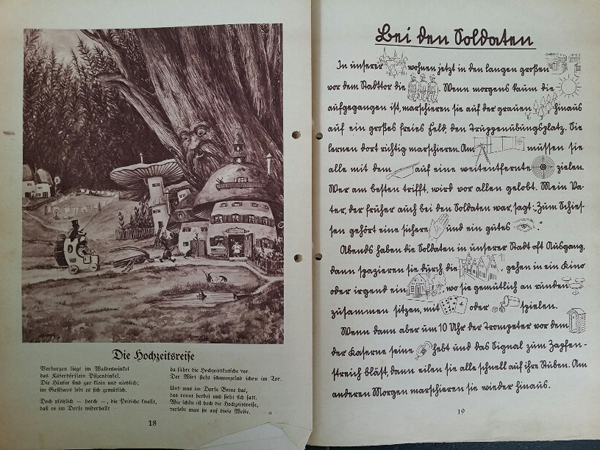 Die Hochzeitsreise
Verborgen liegt im Waldeswinkel
das Käferdörflein Pilzendinkel.
Die Häuser sind zwar klein und niedlich;
im Gasthaus lebt es sich gemütlich.
Doch plötzlich – horch –, die Peitsche knallt,
daß es im Dorfe widerhallt
da fährt die Hochzeitskutsche vor.
Der Wirt steht schmunzelnd schon im Tor.
Und was im Dorfe Beine hat,
das rennt herbei und sieht sich satt.
Wie schön ist doch die Hochzeitsreise,
verlebt man sie auf diese Weise.
18
Bei den Soldaten
In unserer wohnen jetzt in den langen großen
vor dem Stadttor die Wenn morgens kaum die
aufgegangen ist, marschieren sie auf der grauen hinaus
auf ein großes freies Feld, den Truppenübungsplatz. Sie
lernen dort richtig marschieren. Am müssen sie
alle mit dem auf eine weitentfernte zielen.
Wer am besten trifft, wird vor allen gelobt. Mein Va-
ter, der früher auch bei den Soldaten war, sagt: „Zum Schies-
sen gehört eine sichere und ein gutes
Abends haben die Soldaten in unserer Stadt oft Ausgang,
dann spazieren sie durch die gehen in ein Kino
oder irgend ein wo sie gemütlich an runden
zusammen sitzen, mit oder spielen.
Wenn dann aber um 10 Uhr der Trompeter vor dem
der Kaserne seine hebt und das Signal zum Zapfen-
streich bläst, dann eilen sie alle schnell auf ihre Stuben. Am
anderen Morgen marschieren sie wieder hinaus.
19